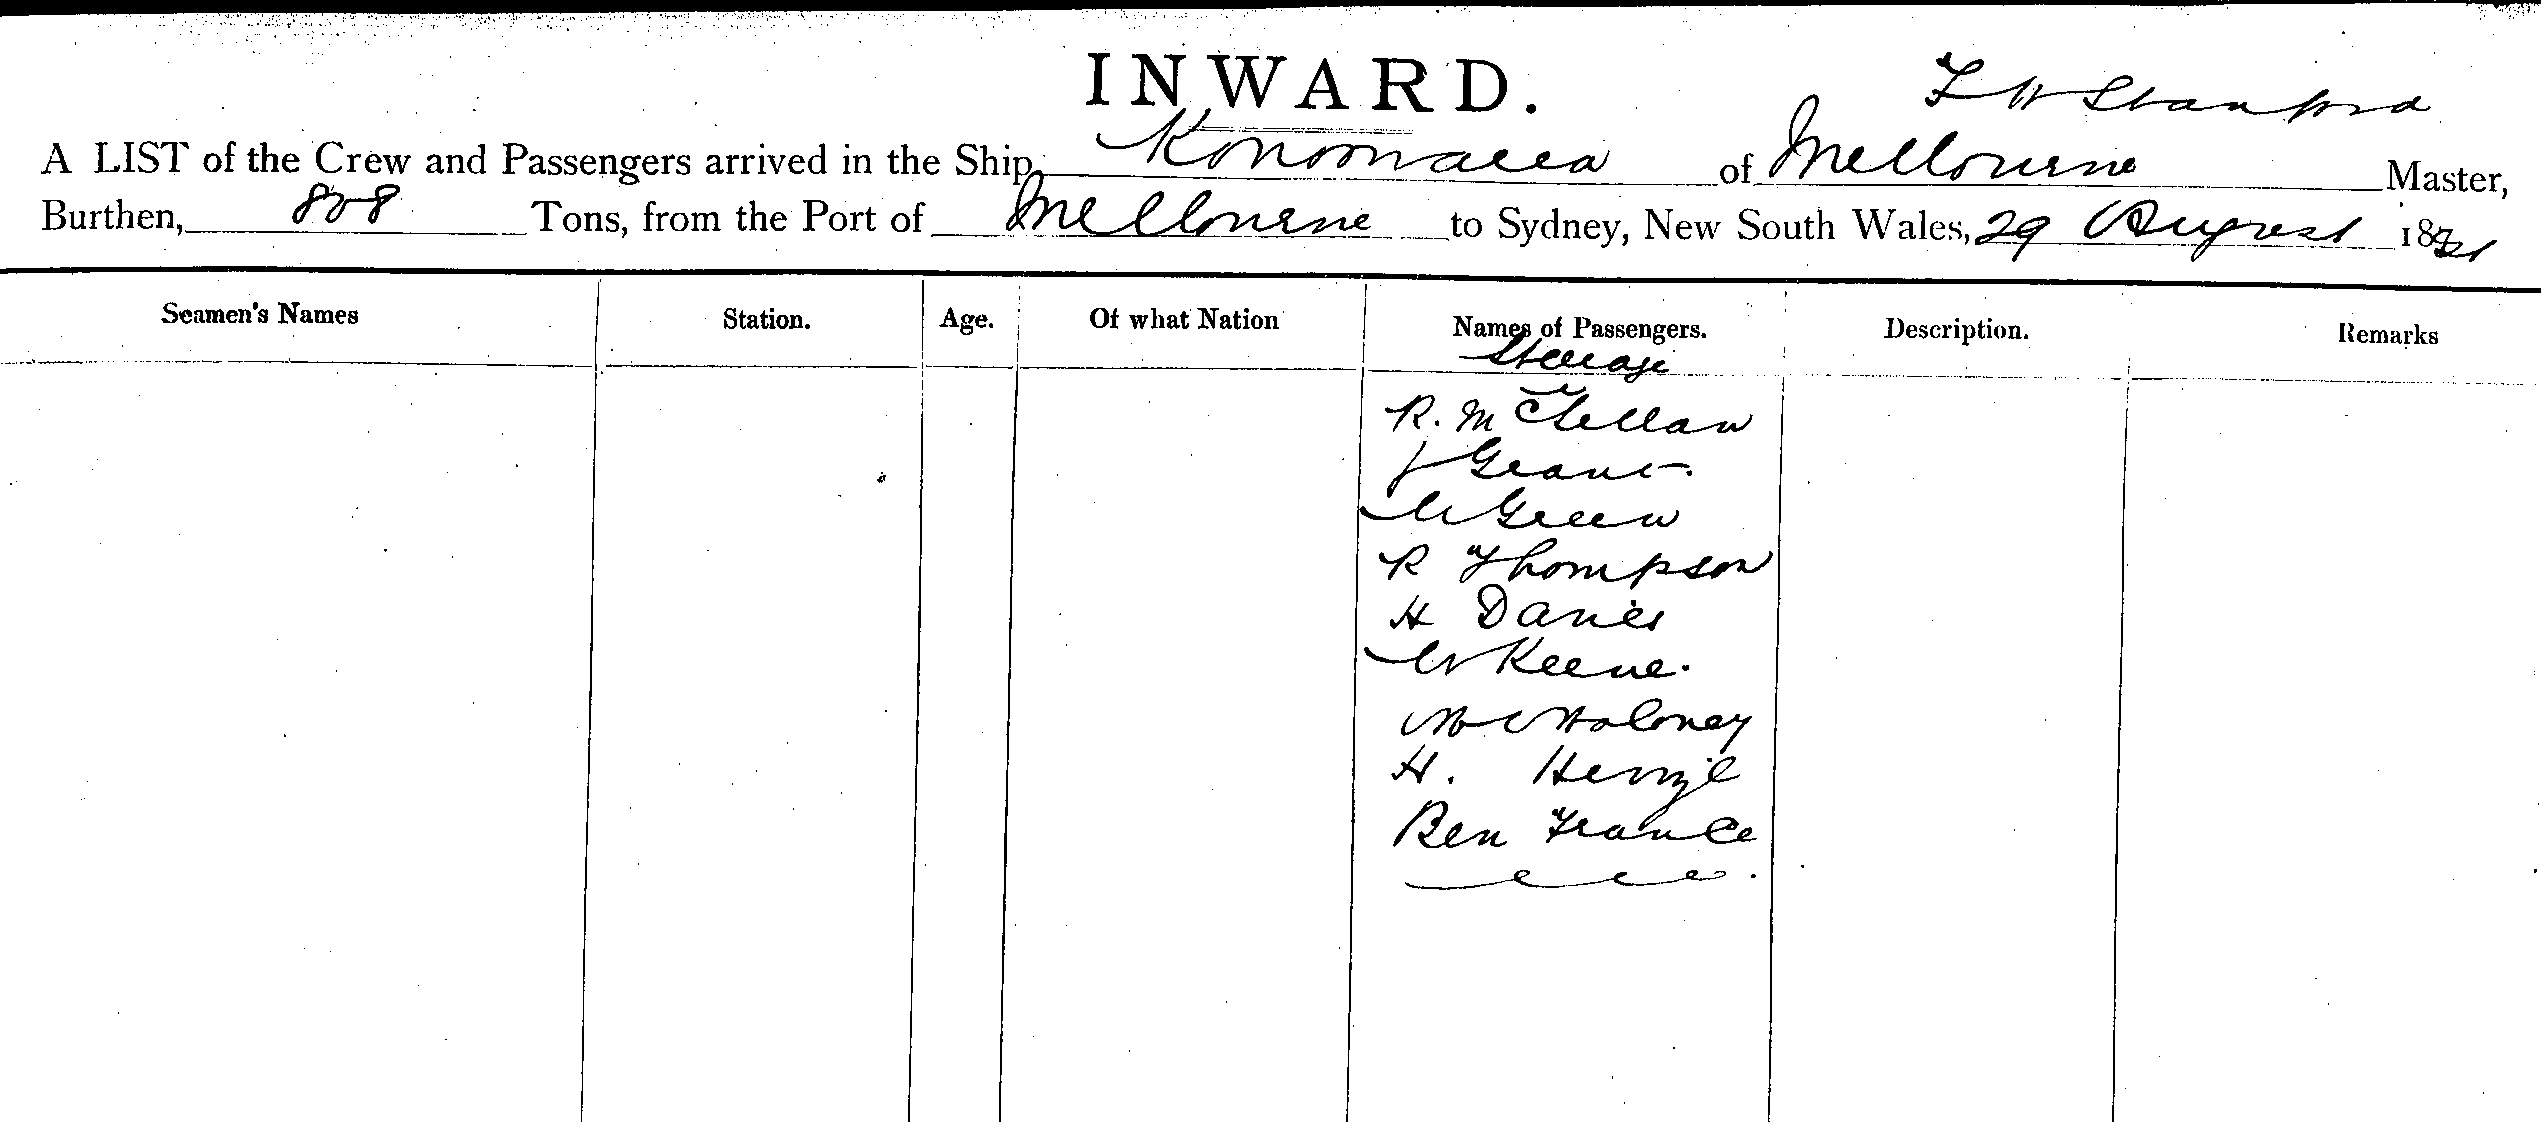 INWARD.
F W Stanford
A LIST of the Crew and Passengers arrived in the Ship, Konoowarra of Melbourne Master,
Burthen, 808 Tons, from the Port of Melbourne to Sydney, New South Wales, 29 August 18
Seamen's Names Station. Age. Of what Nation Names of Passengers. Description. Remarks
Steerage
R. McClellan
J Grant
W Green
R Thompson
H Davies
W Keene.
M Moloney
H.
Ben France